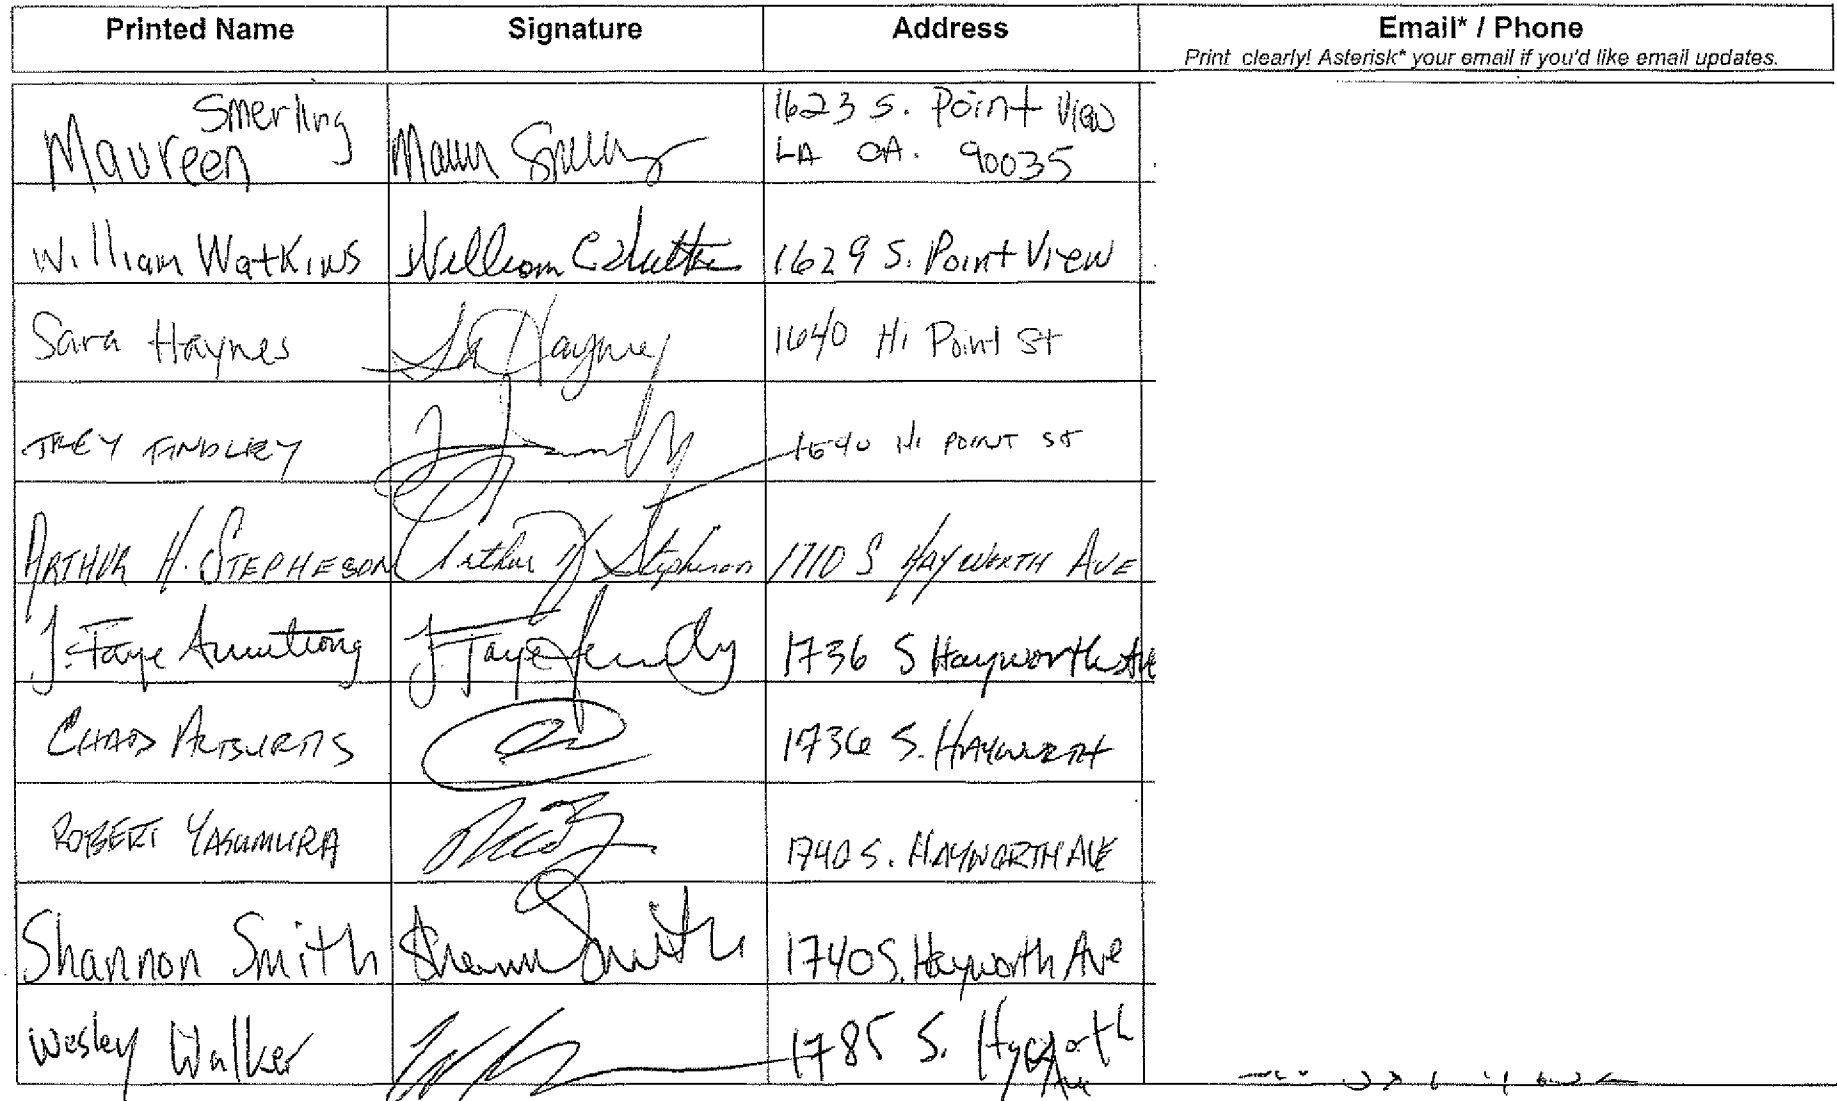 Printed Name Signature Address Email* / Phone
Print clearly! Asterisk* your email if you'd like email updates.
Smerling
Maureen
1623 S. Point View
LA CA. 90035
William Watkins William 1629 S. Point View
Sara Haynes 1640 Hi Point St
TREY FINDLEY 1640 Hi POINT ST
ARTHUR H. STEPHESON Arthur H Stepheson 1710 S HAYWORTH AVE
J. Faye Armstrong J Faye 1736 S Hayworth Ave
CHAD 1736 S. HAYWORTH
ROBERT YASUMURA 1740 S. HAYWORTH AVE
Shannon Smith Shannon Smith 1740 S. Hayworth Ave
Wesley Walker 1785 S. Hayworth
Ave